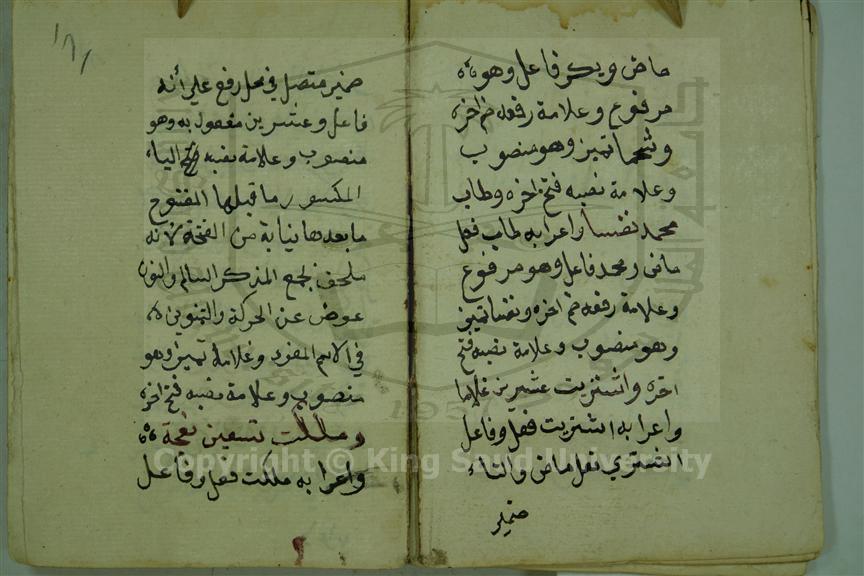 ماض وبكر فاعل وهو
مرفوع وعلامة رفعه ضم اخره
وشحما تميز وهو منصوب
وعلامة نصبه فتح اخره وطاب
محمد نفسا واعرابه طاب فعل
ماض ومحمد فاعل وهو مرفوع
وعلامة رفعه ضم اخره ونفسا تميز
وهو منصوب وعلامة نصبه فتح
اخره واشتريت عشرين غلاما
واعرابه اشتريت فعل وفاعل
اشتري فعل ماض والتاء
ضمير
١٨١
ضمير متصل في محل رفع على أنه
فاعل وعشرين مفعول به وهو
منصوب وعلامة نصبه الياء
المكسور ما قبلها المفتوح
ما بعدها نيابة من الفتحة لانه
ملحق بجمع المذكر السالم والنون
عوض عن الحركة والتنوين
في الاسم المفرد وغلاما تميز وهو
منصوب وعلامة نصبه فتح اخره
وملكت تسعين نعجة
واعرابه ملكت فعل وفاعل
Copyright © King Saud University
1957